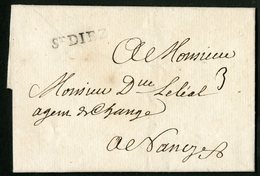 St DIEZ
A Monsieur
Monsieur Dque Leléal 3
agent de Change
A Nancy